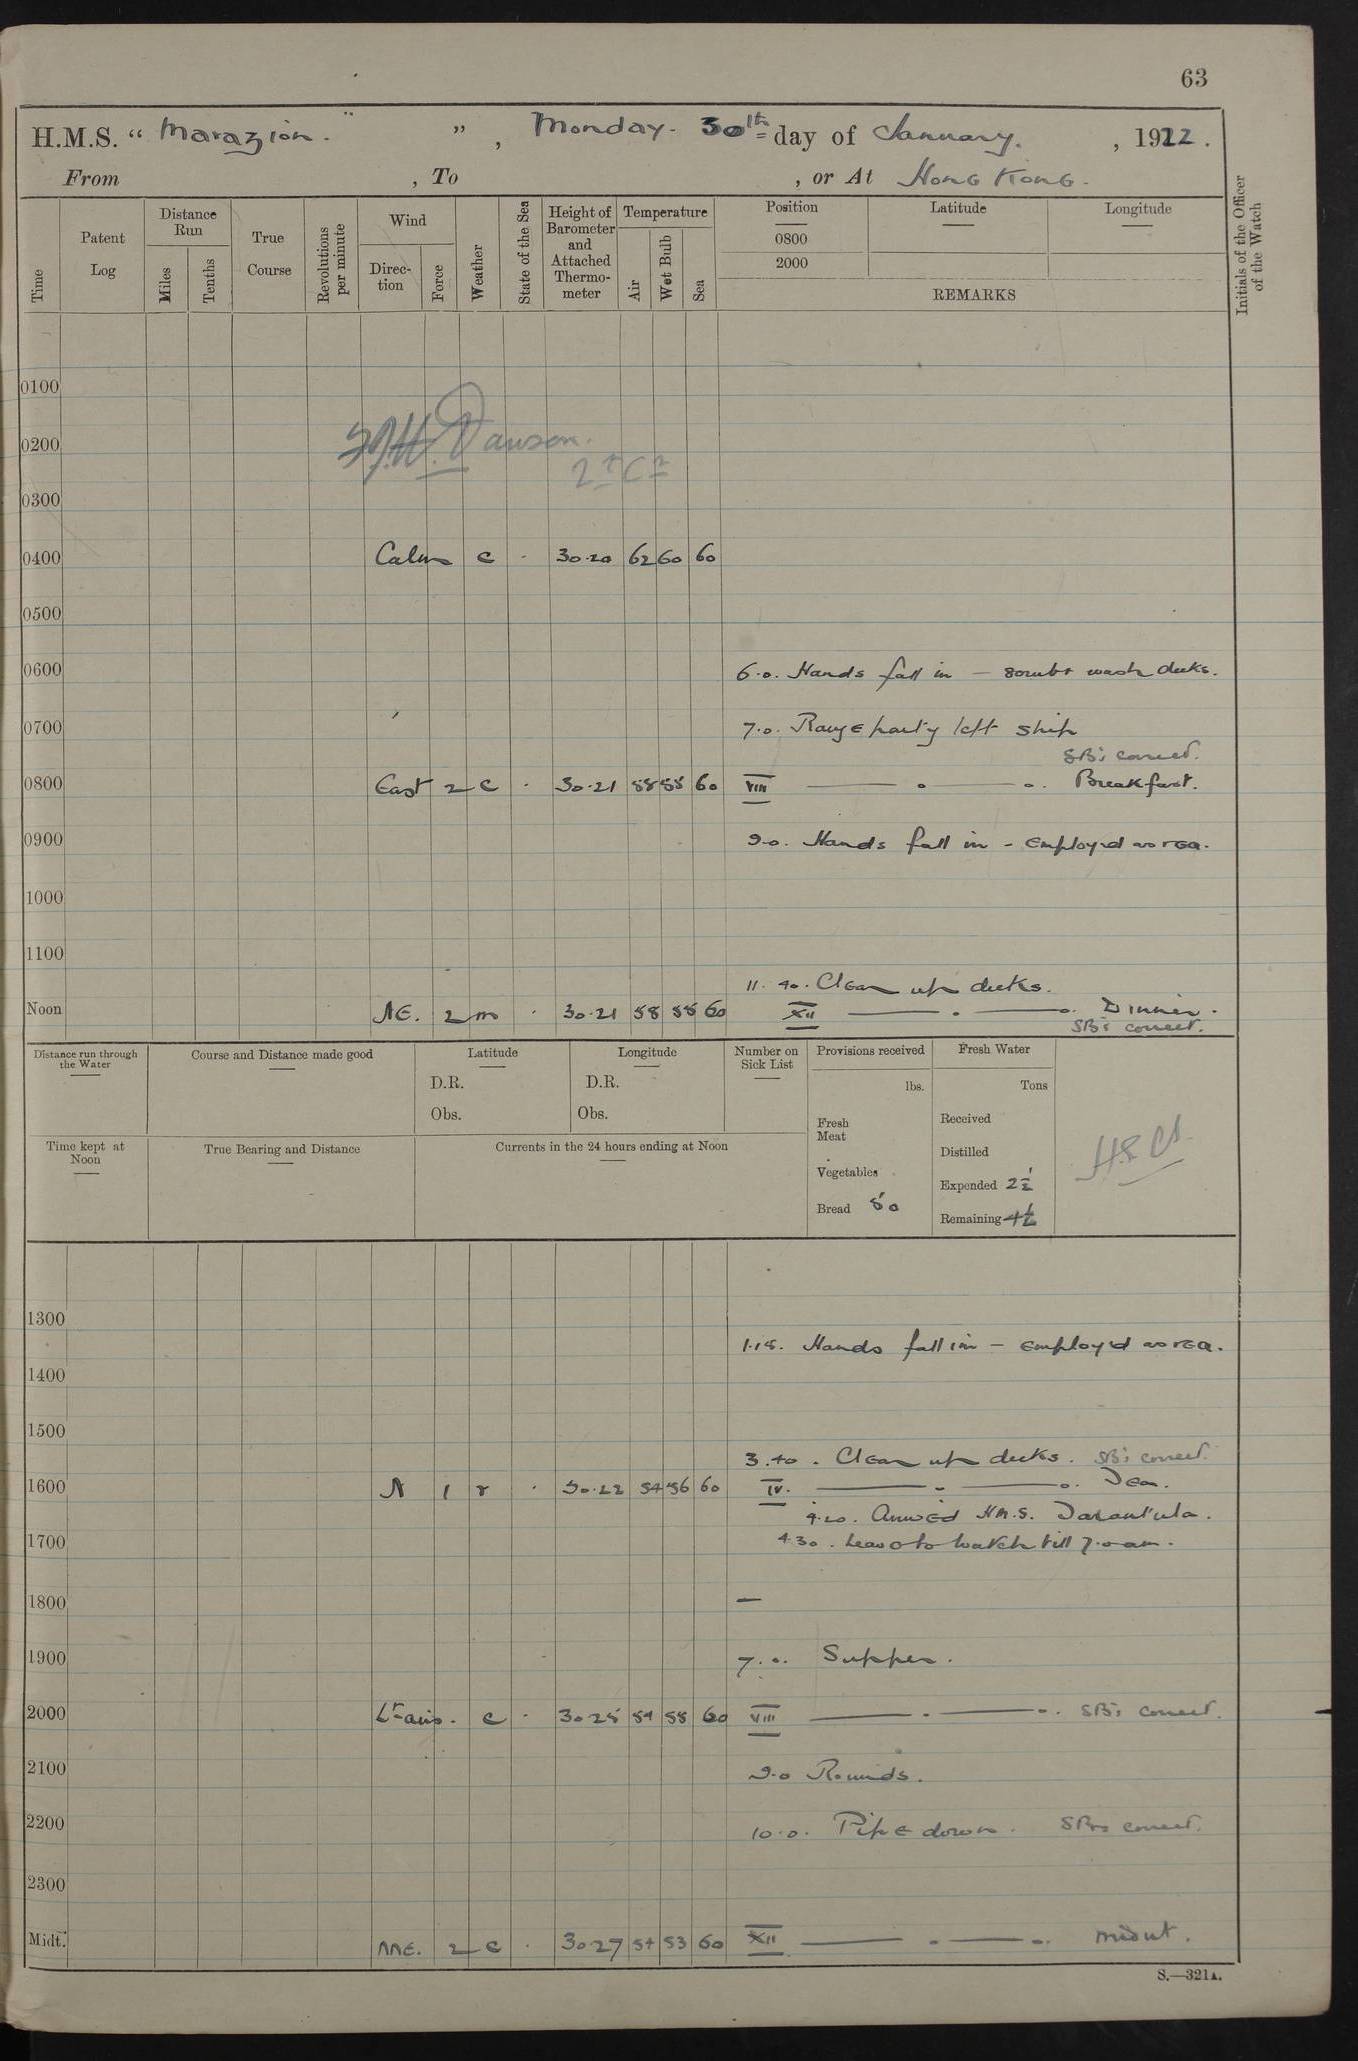 63
H.M.S. “ Marazion. ” ” , Monday. 30th day of January. , 1922.
From , To , or At Hong Kong.
Time
Patent Log
Distance Run
Miles
Tenths
True Course
Revolutions per minute
Wind
Direc-tion
Force
Weather
State of the Sea
Height of Barometer and Attached Thermo-meter
Temperature
Air
Wet Bulb
Sea
Position
0800
2000
Latitude
Longitude
REMARKS
Initials of the Officer of the Watch
0100
0200 Dawson.
0300
0400 Calm c . 30.20 62 60 60
0500
0600 6.0. Hands fall in — scrub & wash decks.
0700 7.0. Range party left ship
SB's correct.
0800 East 2 c . 30.21 58 55 60 VIII Breakfast.
0900 9.0. Hands fall in - Employ'd as req.
1000
1100
11.40. Clean up decks.
Noon NE. 2 m . 30.21 58 55 60 XII Dinner.
SB's correct.
Distance run through the Water
Course and Distance made good
Latitude
D.R.
Obs.
Longitude
D.R.
Obs.
Number on Sick List
Provisions received
lbs.
Fresh Meat
Vegetables
Bread 50
Fresh Water
Tons
Received
Distilled
Expended 2½
Remaining
Time kept at Noon
True Bearing and Distance
Currents in the 24 hours ending at Noon
1300
1.15. Hands fall in — Employ'd as req.
1400
1500
3.40. Clean up decks. SB's correct.
1600 N 1 r . 30.22 54 56 60 IV. Tea.
4.20. Arrived H.M.S. Tarantula.
1700 4.30. Leave to watch till 7.0 am.
1800 —
1900 7.0. Supper.
2000 Lt airs. c . 30.25 54 55 60 VIII SB's correct.
2100 9.0 Rounds.
2200 10.0. Pipe down. SB's correct.
2300
Midt. NNE. 2 c . 30.27 54 53 60 XII midnt.
S.—321A.